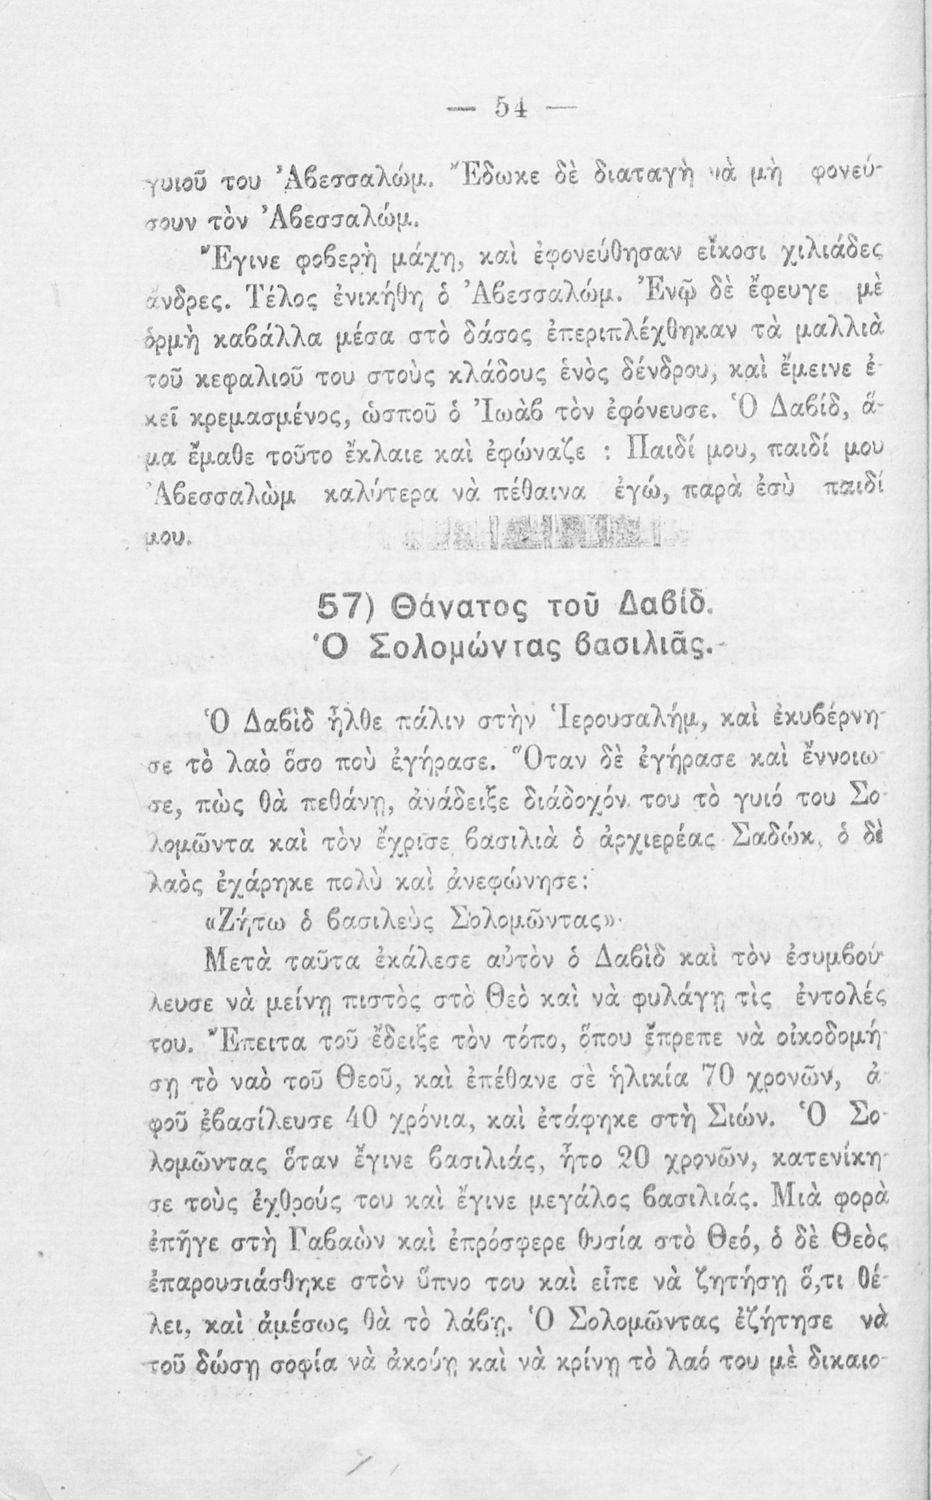 — 54 —
γυιοῦ του Ἀβεσσαλώμ. Ἔδωκε δὲ διαταγὴ νὰ μὴ φονεύ-
σουν τὸν Ἀβεσσαλώμ.
Ἔγινε φοβερὴ μάχη, καὶ ἐφονεύθησαν εἴκοσι χιλιάδες
ἄνδρες. Τέλος ἐνικήθη ὁ Ἀβεσσαλώμ. Ἐνῷ δὲ ἔφευγε μὲ
ὁρμὴ καβάλλα μέσα στὸ δάσος ἐπεριπλέχθηκαν τὰ μαλλιὰ
τοῦ κεφαλιοῦ του στοὺς κλάδους ἑνὸς δένδρου, καὶ ἔμεινε ἐ-
κεῖ κρεμασμένος, ὡσποῦ ὁ Ἰωὰβ τὸν ἐφόνευσε. Ὁ Δαβίδ, ἅ-
μα ἔμαθε τοῦτο ἔκλαιε καὶ ἐφώναζε : Παιδί μου, παιδί μου
Ἀβεσσαλὼμ καλύτερα νὰ πέθαινα ἐγώ, παρὰ ἐσὺ παιδί
μου.
57) Θάνατος τοῦ Δαβίδ.
Ὁ Σολομώντας βασιλιᾶς.-
Ὁ Δαβὶδ ἦλθε πάλιν στὴν Ἱερουσαλήμ, καὶ ἐκυβέρνη-
σε τὸ λαὸ ὅσο ποὺ ἐγήρασε. Ὅταν δὲ ἐγήρασε καὶ ἔννοιω-
σε, πὼς θὰ πεθάνῃ, ἀνάδειξε διάδοχόν του τὸ γυιό του Σο
λομῶντα καὶ τὸν ἔχρισε βασιλιὰ ὁ ἀρχιερέας Σαδώκ, ὁ δὲ
λαὸς ἐχάρηκε πολὺ καὶ ἀνεφώνησε:
«Ζήτω ὁ βασιλεὺς Σολομῶντας»·
Μετὰ ταῦτα ἐκάλεσε αὐτὸν ὁ Δαβὶδ καὶ τὸν ἐσυμβού-
λευσε νὰ μείνῃ πιστὸς στὸ Θεὸ καὶ νὰ φυλάγῃ τὶς ἐντολές
του. Ἔπειτα τοῦ ἔδειξε τὸν τόπο, ὅπου ἔπρεπε νὰ οἰκοδομή-
σῃ τὸ ναὸ τοῦ Θεοῦ, καὶ ἐπέθανε σὲ ἡλικία 70 χρονῶν, ἀ
φοῦ ἐβασίλευσε 40 χρόνια, καὶ ἐτάφηκε στὴ Σιών. Ὁ Σο-
λομῶντας ὅταν ἔγινε βασιλιάς, ἦτο 20 χρονῶν, κατενίκη-
σε τοὺς ἐχθρούς του καὶ ἔγινε μεγάλος βασιλιάς. Μιὰ φορὰ
ἐπῆγε στὴ Γαβαὼν καὶ ἐπρόσφερε θυσία στὸ Θεό, ὁ δὲ Θεὸς
ἐπαρουσιάσθηκε στὸν ὕπνο του καὶ εἶπε νὰ ζητήσῃ ὅ,τι θέ-
λει, καὶ ἀμέσως θὰ τὸ λάβῃ. Ὁ Σολομῶντας ἐζήτησε νὰ
τοῦ δώσῃ σοφία νὰ ἀκούῃ καὶ νὰ κρίνῃ τὸ λαό του μὲ δικαιο-